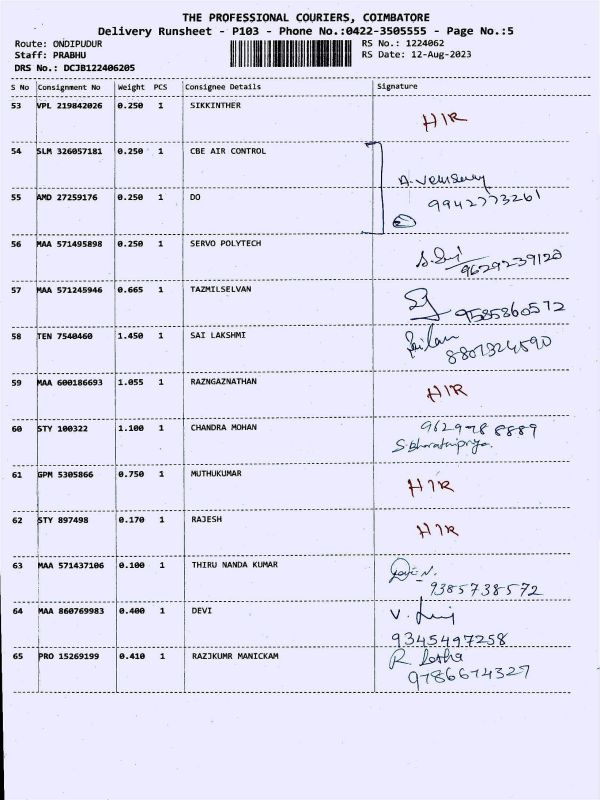 THE PROFESSIONAL COURIERS, COIMBATORE
Delivery Runsheet - P103 - Phone No.:0422-3505555 - Page No.:5
Route: ONDIPUDUR RS No.: 1224062
Staff: PRABHU RS Date: 12-Aug-2023
DRS No.: DCJB122406205
S No Consignment No Weight PCS Consignee Details Signature
53 VPL 219842026 0.250 1 SIKKINTHER HIR
54 SLM 326057181 0.250 1 CBE AIR CONTROL
55 AMD 27259176 0.250 1 DO 9942773261
56 MAA 571495898 0.250 1 SERVO POLYTECH 9629239120
57 MAA 571245946 0.665 1 TAZMILSELVAN 9585860572
58 TEN 7540460 1.450 1 SAI LAKSHMI
59 MAA 600186693 1.055 1 RAZNGAZNATHAN HIR
60 STY 100322 1.100 1 CHANDRA MOHAN 9629788889
S.Bharathipriya
61 GPM 5305866 0.750 1 MUTHUKUMAR HIR
62 STY 897498 0.170 1 RAJESH HIR
63 MAA 571437106 0.100 1 THIRU NANDA KUMAR
9385738572
64 MAA 860769983 0.400 1 DEVI
9345497258
65 PRO 15269199 0.410 1 RAZJKUMR MANICKAM R Latha
9786674327